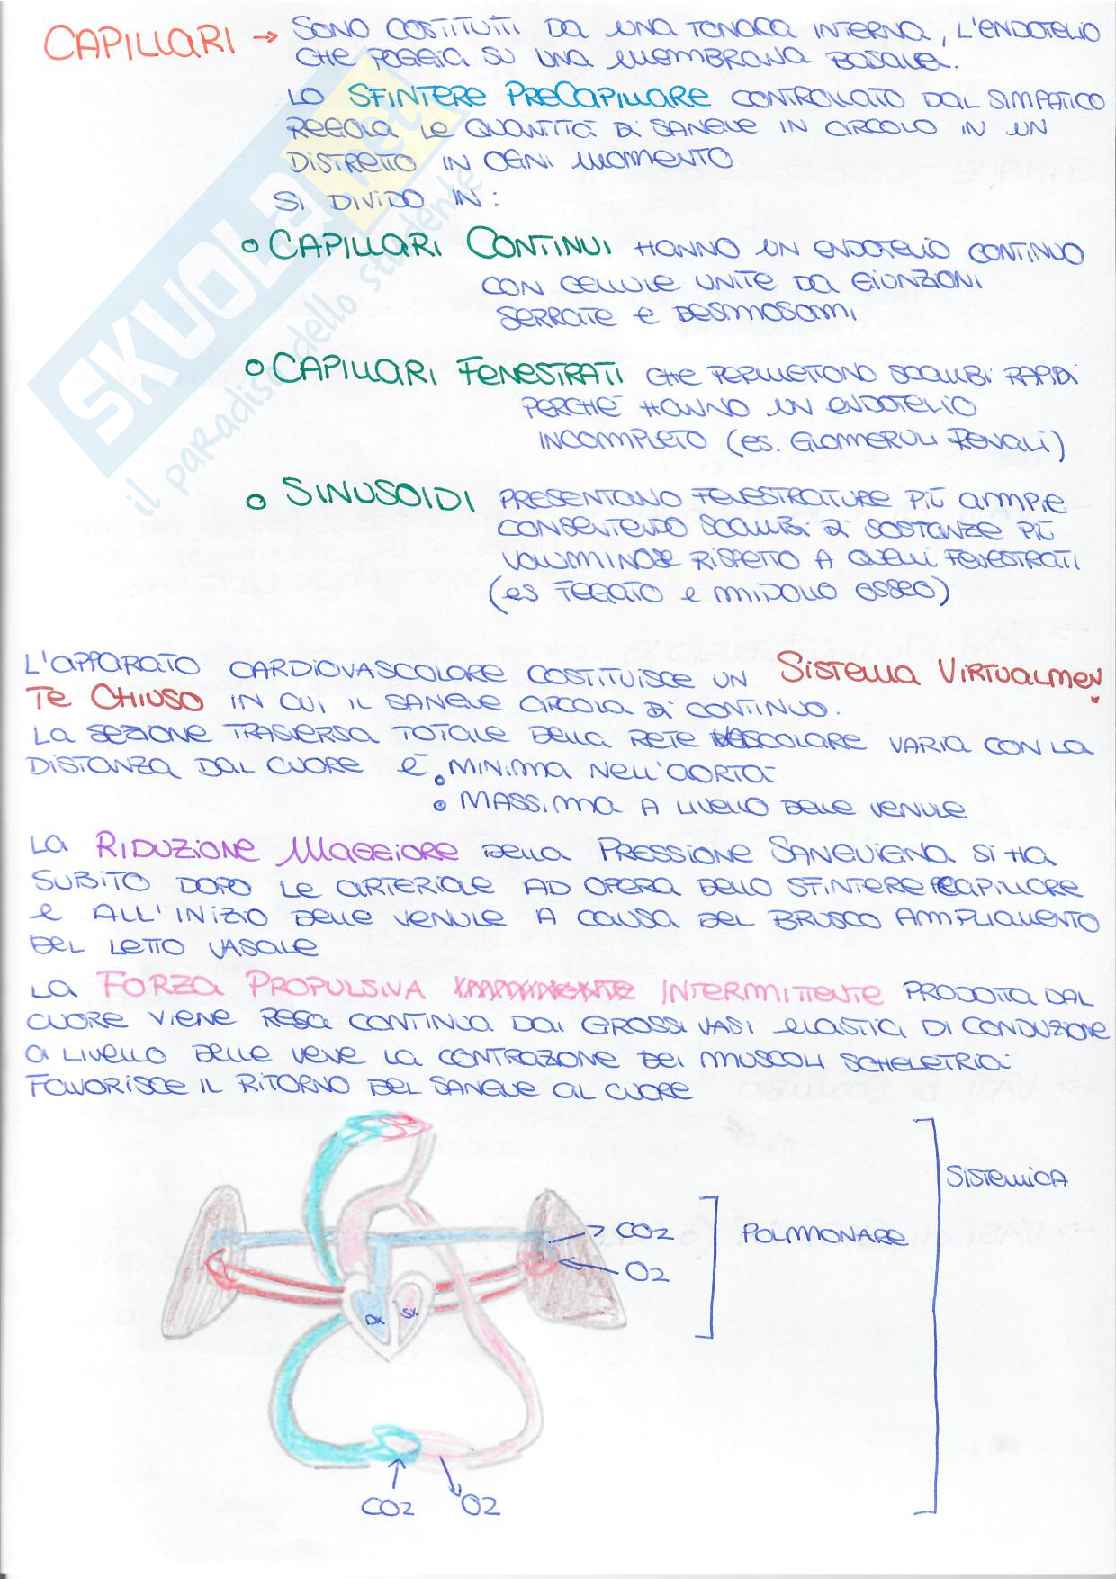 CAPILLARI → SONO COSTITUITI DA UNA TONACA INTERNA, L'ENDOTELIO
CHE POGGIA SU UNA MEMBRANA BASALE.
LO SFINTERE PRECAPILLARE CONTROLLATO DAL SIMPATICO
REGOLA LE QUANTITÀ DI SANGUE IN CIRCOLO IN UN
DISTRETTO IN OGNI MOMENTO
SI DIVIDO IN:
• CAPILLARI CONTINUI HANNO UN ENDOTELIO CONTINUO
CON CELLULE UNITE DA GIUNZIONI
SERRATE E DESMOSOMI
• CAPILLARI FENESTRATI CHE PERMETTONO SCAMBI RAPIDI
PERCHÉ HANNO UN ENDOTELIO
INCOMPLETO (ES. GLOMERULI RENALI)
• SINUSOIDI PRESENTANO FENESTRATURE PIÙ AMPIE
CONSENTENDO SCAMBI DI SOSTANZE PIÙ
VOLUMINOSE RISPETTO A QUELLI FENESTRATI
(ES FEGATO E MIDOLLO OSSEO)
SKUOLA.net
il paradiso dello studente
L'APPARATO CARDIOVASCOLARE COSTITUISCE UN SISTEMA VIRTUALMEN
TE CHIUSO IN CUI IL SANGUE CIRCOLA DI CONTINUO.
LA SEZIONE TRASVERSA TOTALE DELLA RETE VASCOLARE VARIA CON LA
DISTANZA DAL CUORE È • MINIMA NELL'AORTA
• MASSIMA A LIVELLO DELLE VENULE
LA RIDUZIONE MAGGIORE DELLA PRESSIONE SANGUIGNA SI HA
SUBITO DOPO LE ARTERIOLE AD OPERA DELLO SFINTERE CAPILLARE
E ALL'INIZIO DELLE VENULE A CAUSA DEL BRUSCO AMPLIAMENTO
DEL LETTO VASALE
LA FORZA PROPULSIVA INTERMITTENTE PRODOTTA DAL
CUORE VIENE RESA CONTINUA DAI GROSSI VASI ELASTICI DI CONDUZIONE
A LIVELLO DELLE VENE LA CONTRAZIONE DEI MUSCOLI SCHELETRICI
FAVORISCE IL RITORNO DEL SANGUE AL CUORE
SISTEMICA
CO2
POLMONARE
O2
DX
SX
CO2
O2